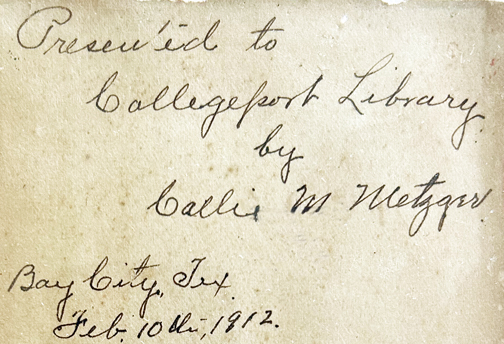 Presented to
Collegeport Library
by
Callie M Metzger
Bay City, Tex.
Feb. 10th, 1912.